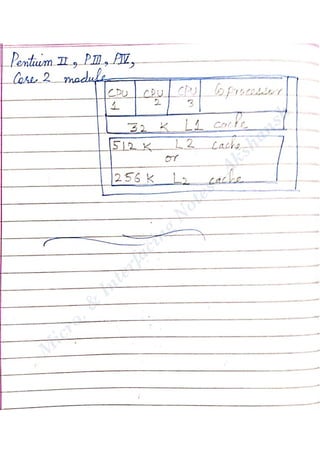 Pentium II, PIII, PIV,
Core 2 module
CPU 1 CPU 2 CPU 3 Coprocessor
32 K L1 cache
512 K L2 cache
or
256 K L2 cache
Micro. & Interfacing Notes - Akshansh